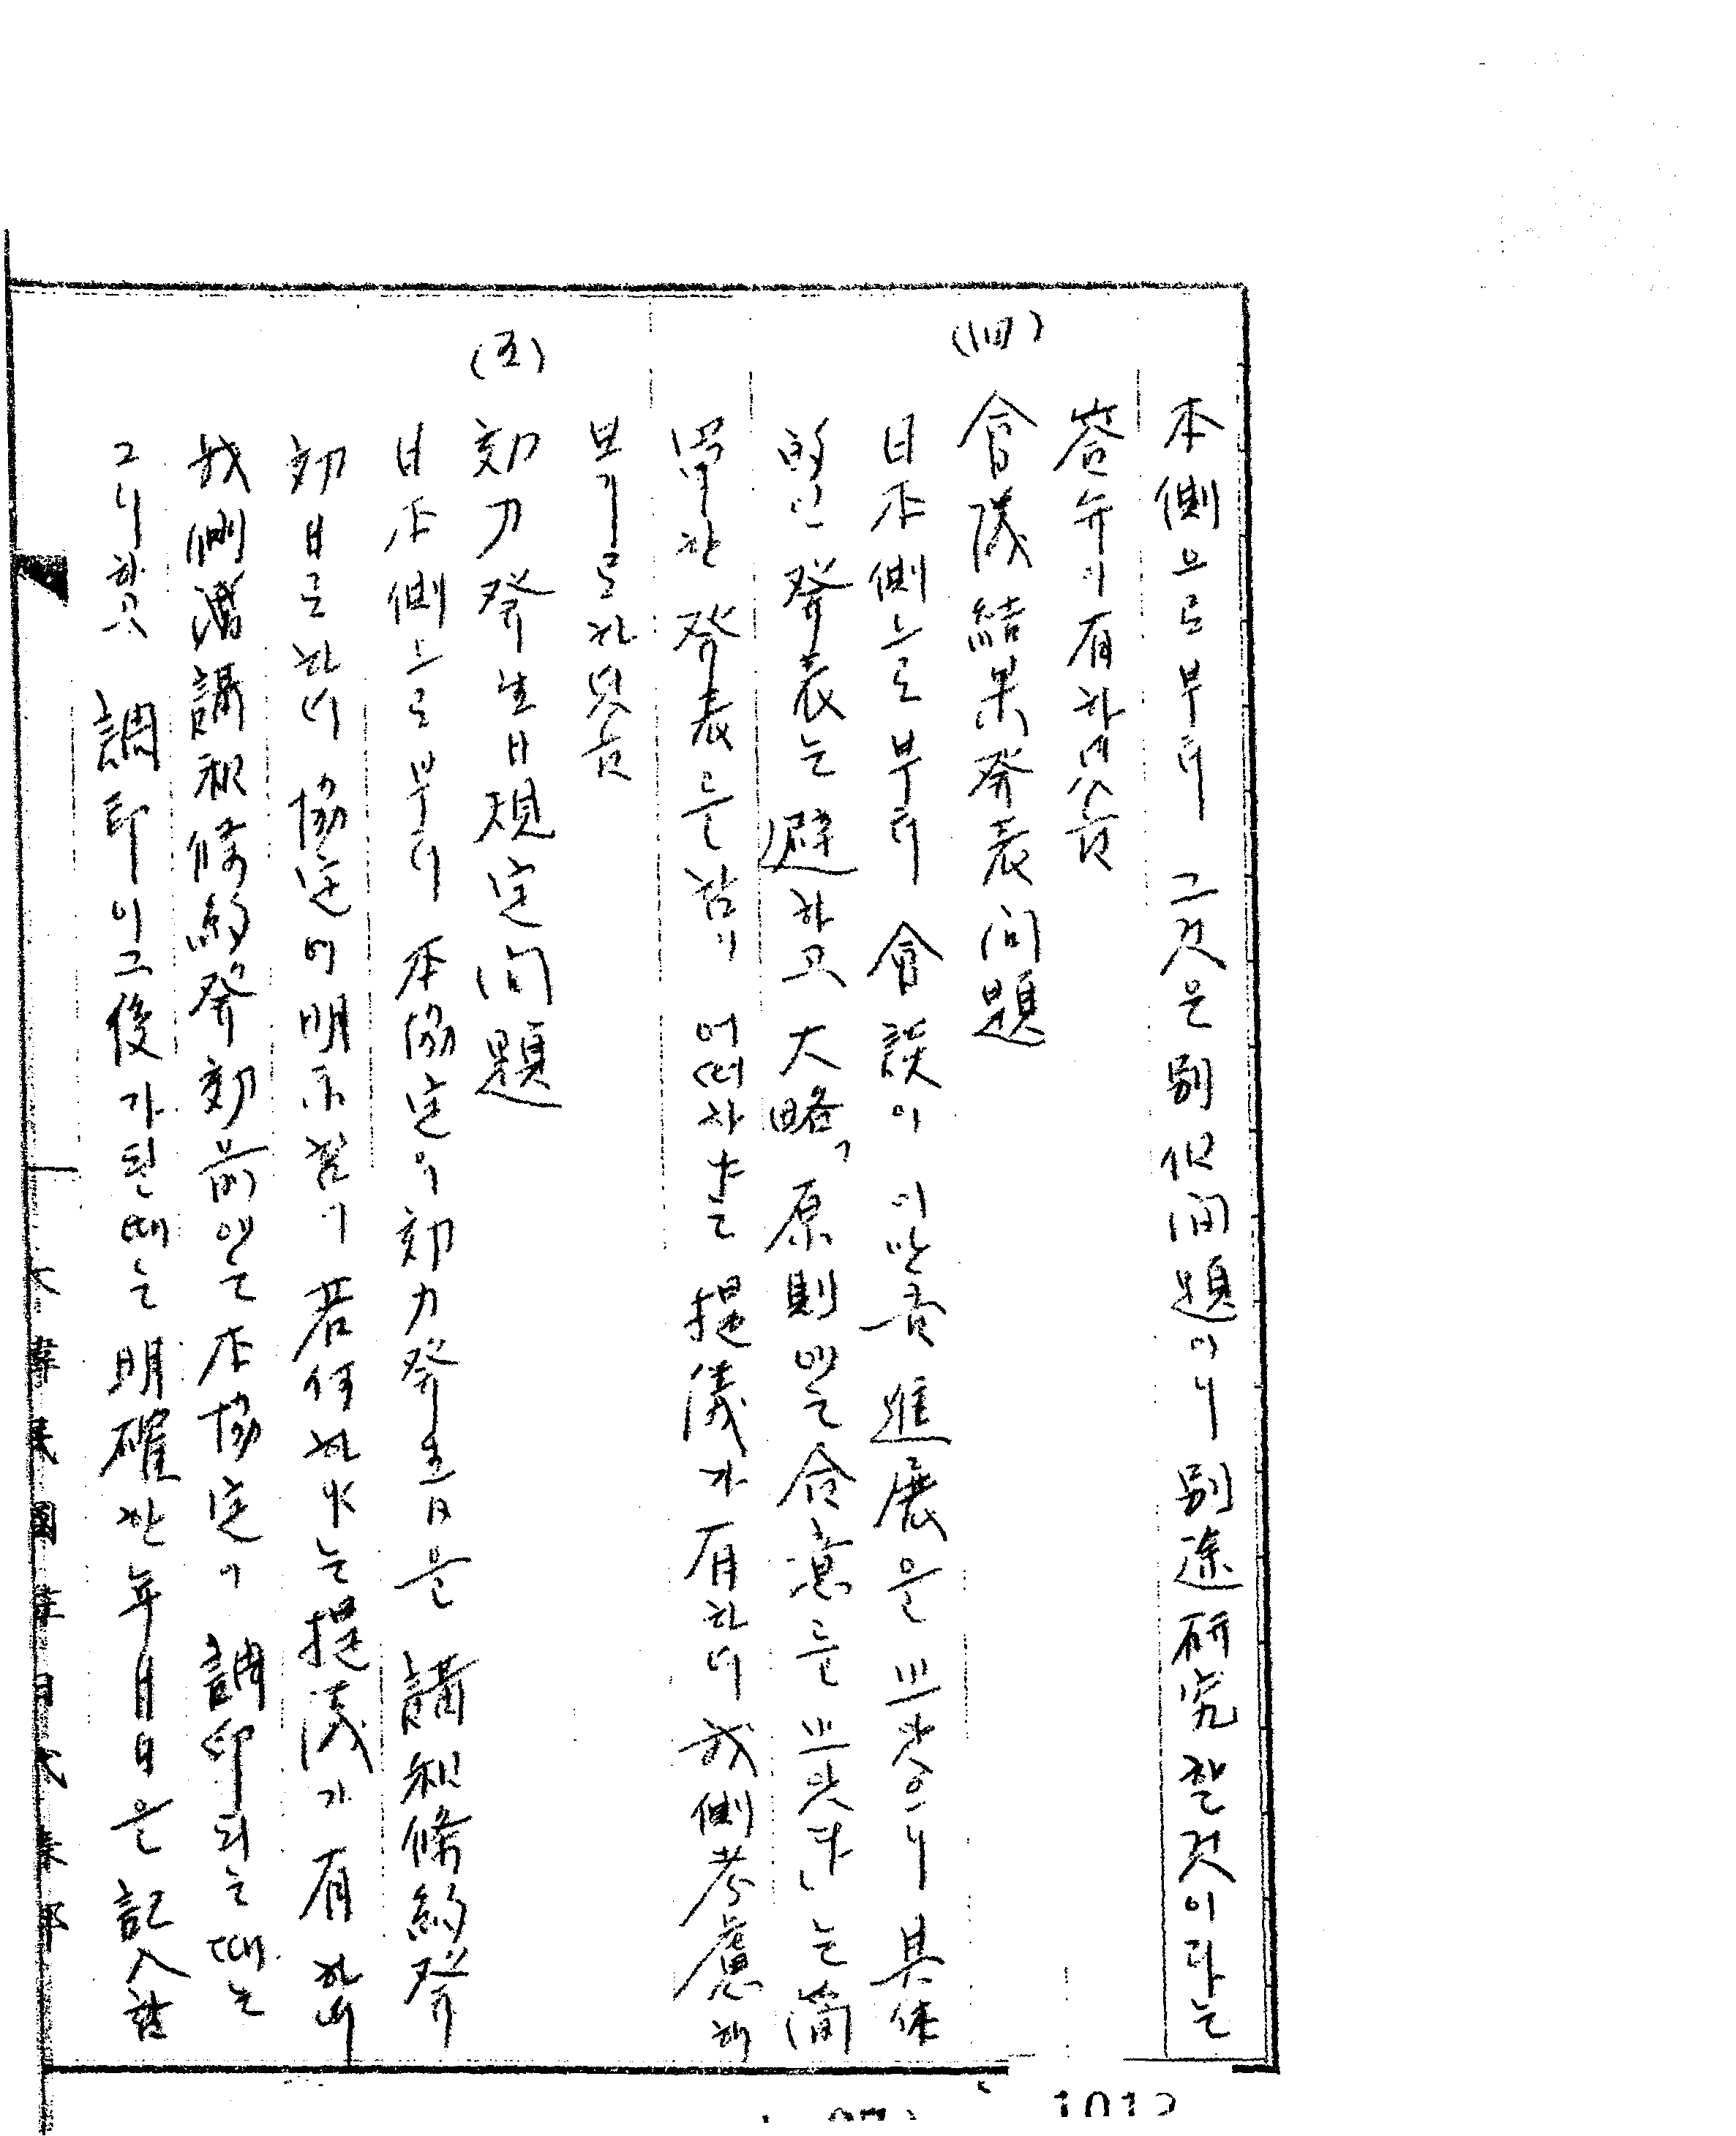 本側으로부터 그것은 別個問題이니 別途硏究할것이라는
答弁이有하엿슴
(四) 會議結果発表問題
日本側으로부터 會談이 이만큼 進展을 보앗으니 具体
的인 発表는 避하고 大略, 原則에는 合意를 보앗다」는 簡
單한 発表를함이 어떠하냐는 提議가有하니 我側考慮해
보기로하엿슴
(五) 効力発生日規定問題
日本側으로부터 本協定의 効力発生日을 講和條約発
効日로하되 協定에明示함이 若何하냐는提議가有하며
我側은 講和條約発効前에는 本協定이 調印되는때는
그리하고 調印이그後가된때는 明確한年月日을記入함
大韓民國駐日代表部
1012